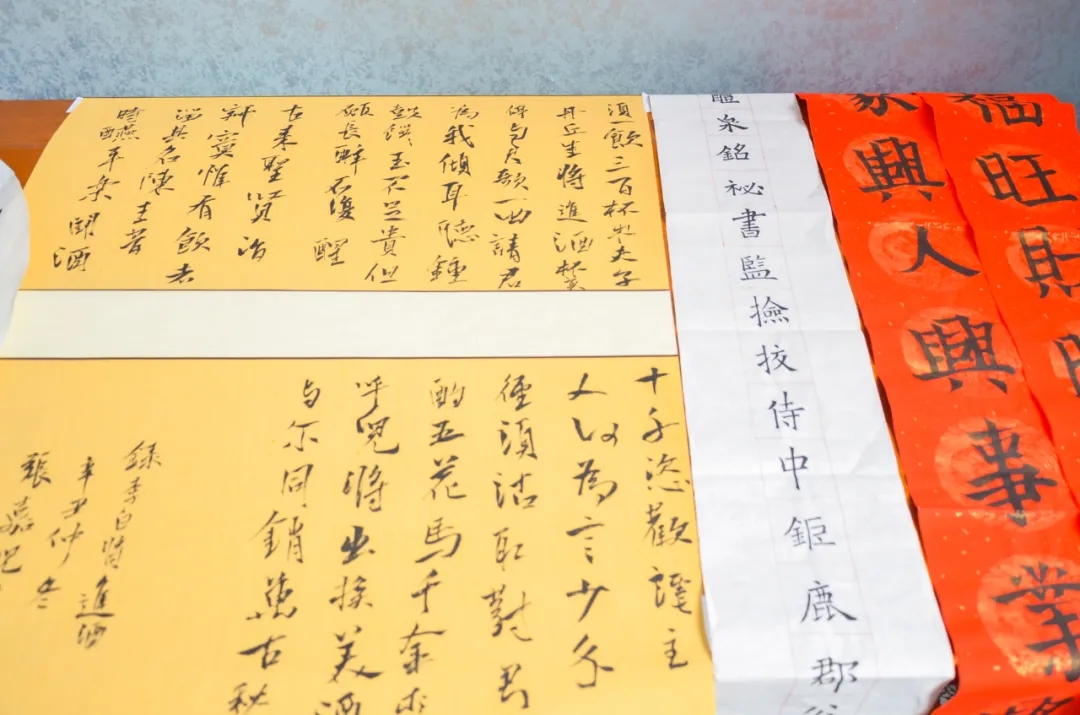 福旺財旺
家興人興事業
醴泉銘祕書監撿挍侍中鉅鹿郡公
須飲三百杯岑夫子
丹丘生將進酒杯莫
停与君歌一曲請君
為我傾耳聽鍾
鼓饌玉不足貴但
願長醉不復醒
古来聖賢皆
寂寞惟有飲者
留其名陳王昔
時醼平樂鬭酒
十千恣歡謔主
人何為言少
徑須沽取對君
酌五花馬千金裘
呼兒將出換美酒
与尔同銷萬古愁
錄李白將進酒
辛丑仲冬
張嘉